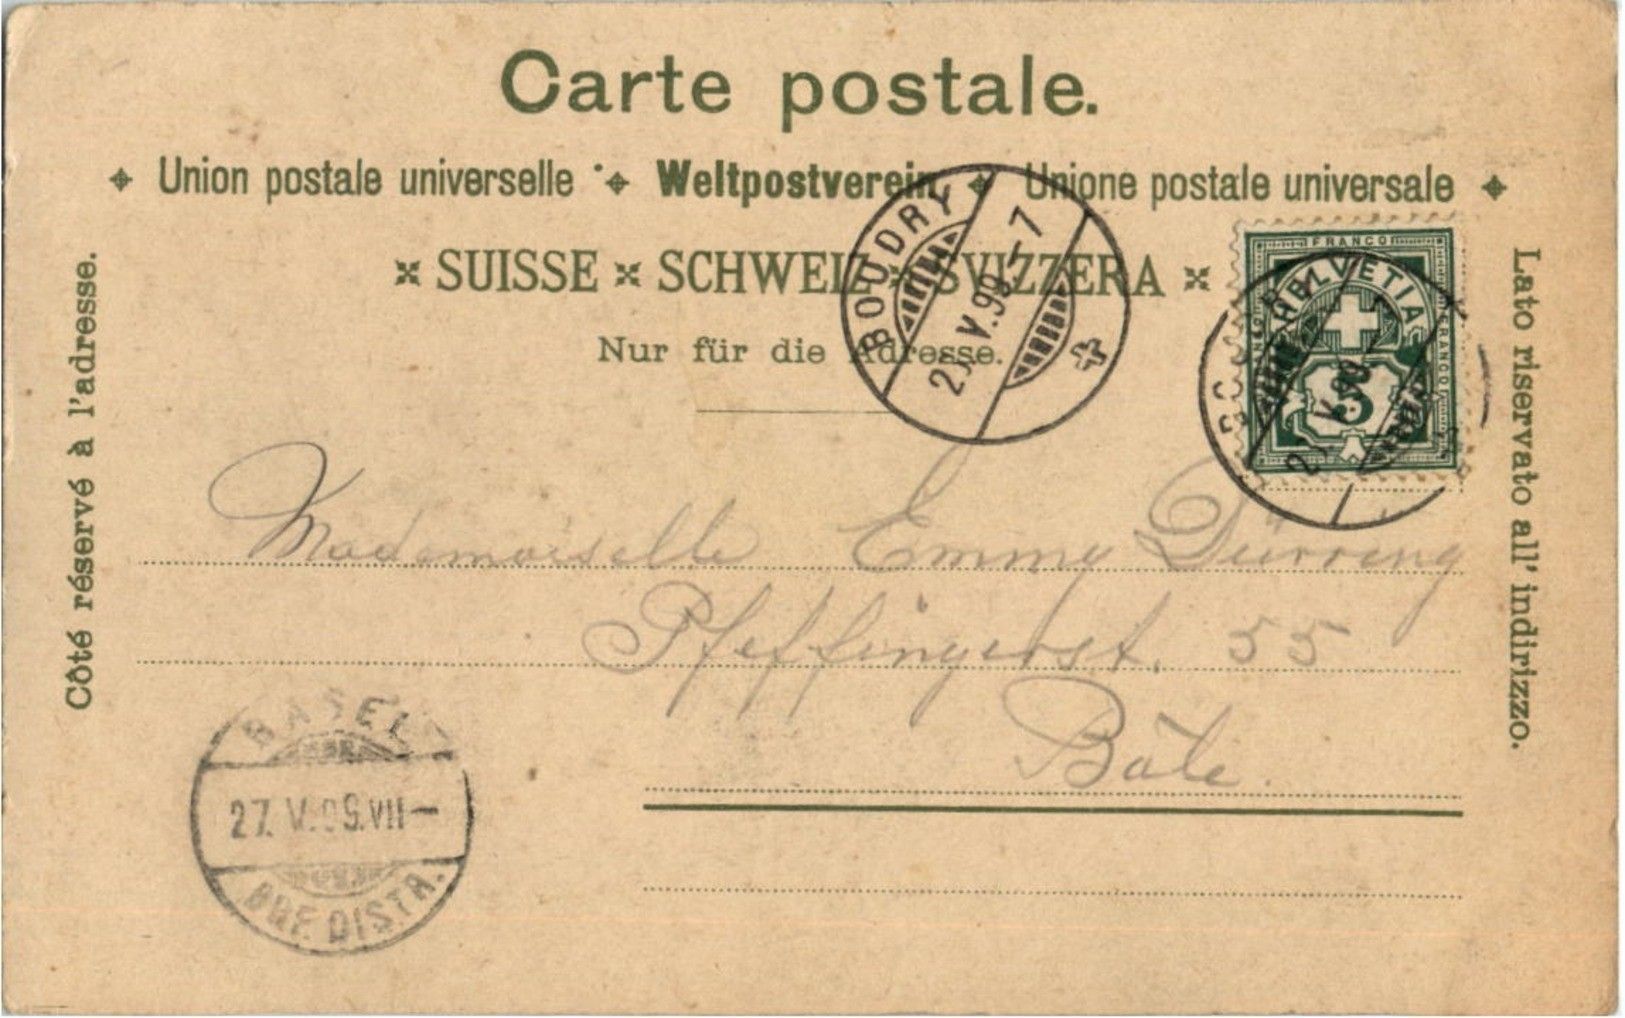 Carte postale.
Union postale universelle Weltpostverein Unione postale universale
SUISSE SCHWEIZ SVIZZERA
Nur für die Adresse.
Côté réservé à l'adresse.
Lato riservato all' indirizzo.
BOUDRY
V.99.-7
FRANCO
HELVETIA
FRANCO
5
BOUDRY
V.99.
Mademoiselle Emmy Dürring
Pfeffingerst. 55
Bâle.
BASEL
27. V.99.VII-
BRF. DISTR.